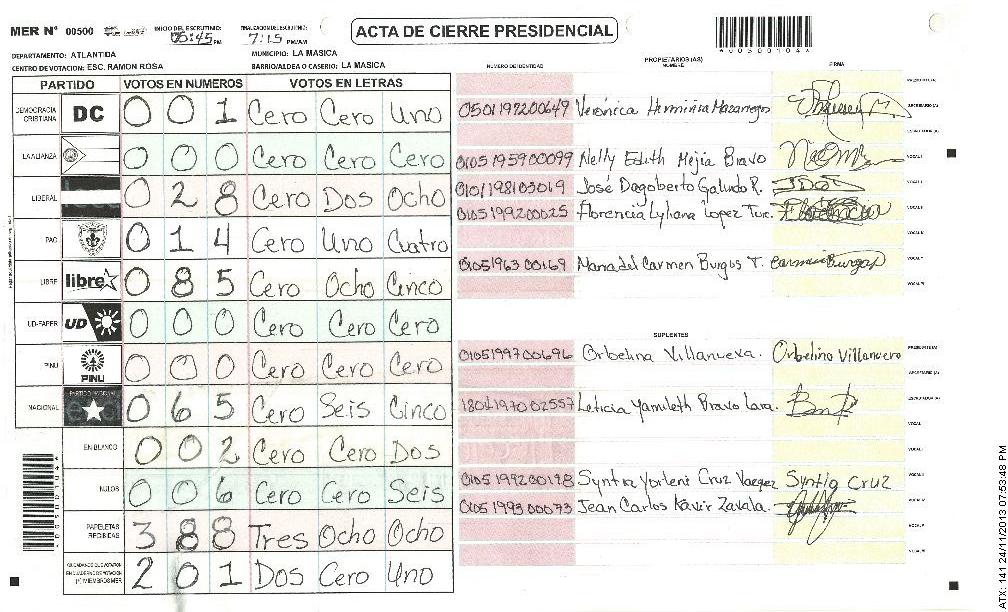 MER N° 00500
INICIO DEL ESCRUTINIO: 05:45 PM
FINALIZACION DEL ESCRUTINIO: 7:15 PM/AM
ACTA DE CIERRE PRESIDENCIAL
DEPARTAMENTO: ATLANTIDA
MUNICIPIO: LA MASICA
CENTRO DE VOTACION: ESC. RAMON ROSA
BARRIO/ALDEA O CASERIO: LA MASICA
PARTIDO VOTOS EN NUMEROS VOTOS EN LETRAS
DEMOCRACIA CRISTIANA DC 0 0 1 Cero Cero Uno
LA ALIANZA 0 0 0 Cero Cero Cero
LIBERAL 0 2 8 Cero Dos Ocho
PAC 0 1 4 Cero Uno Cuatro
LIBRE libre 0 8 5 Cero Ocho Cinco
UD-FAPER UD 0 0 0 Cero Cero Cero
PINU PINU 0 0 0 Cero Cero Cero
NACIONAL 0 6 5 Cero Seis Cinco
EN BLANCO 0 0 2 Cero Cero Dos
NULOS 0 0 6 Cero Cero Seis
PAPELETAS RECIBIDAS 3 8 8 Tres Ocho Ocho
2 0 1 Dos Cero Uno
NUMERO DE IDENTIDAD
PROPIETARIOS (AS)
NOMBRE
FIRMA
0501197200649 Verónica Herminia
0105195900099 Nelly Edith Mejia Bravo
0101198103019 José Dagoberto Galindo R.
0105199200025 Florencia Lyliana Lopez
0105196300169 Maria del Carmen Burgos T.
SUPLENTES
0105199700696 Orbelina Villanueva. Orbelina Villanueva
1804197002557 Leticia Yamileth Bravo Lara.
0105199200128 Syntia Yorleni Cruz Syntia Cruz
0105199300073 Jean Carlos Xavir Zavala.
*00500104*
ATX: 141 24/11/2013 07:53:48 PM